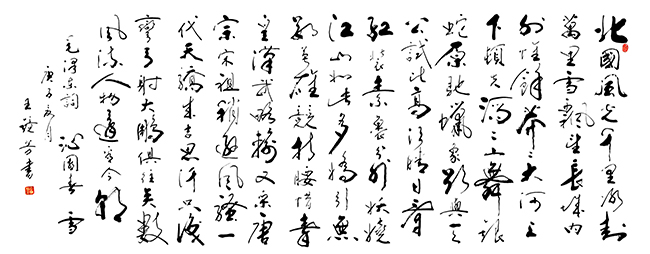 北國風光千里冰封
萬里雪飄望長城內
外惟餘莽々大河上
下頓失滔々山舞銀
蛇原馳蠟象欲與天
公試比高須晴日看
紅裝素裹分外妖嬈
江山如此多嬌引無
數英雄競折腰惜秦
皇漢武略輸文采唐
宗宋祖稍遜風騷一
代天驕成吉思汗只識
彎弓射大鵰俱往矣數
風流人物還看今朝
毛澤東詞 沁園春 雪
庚子夏月